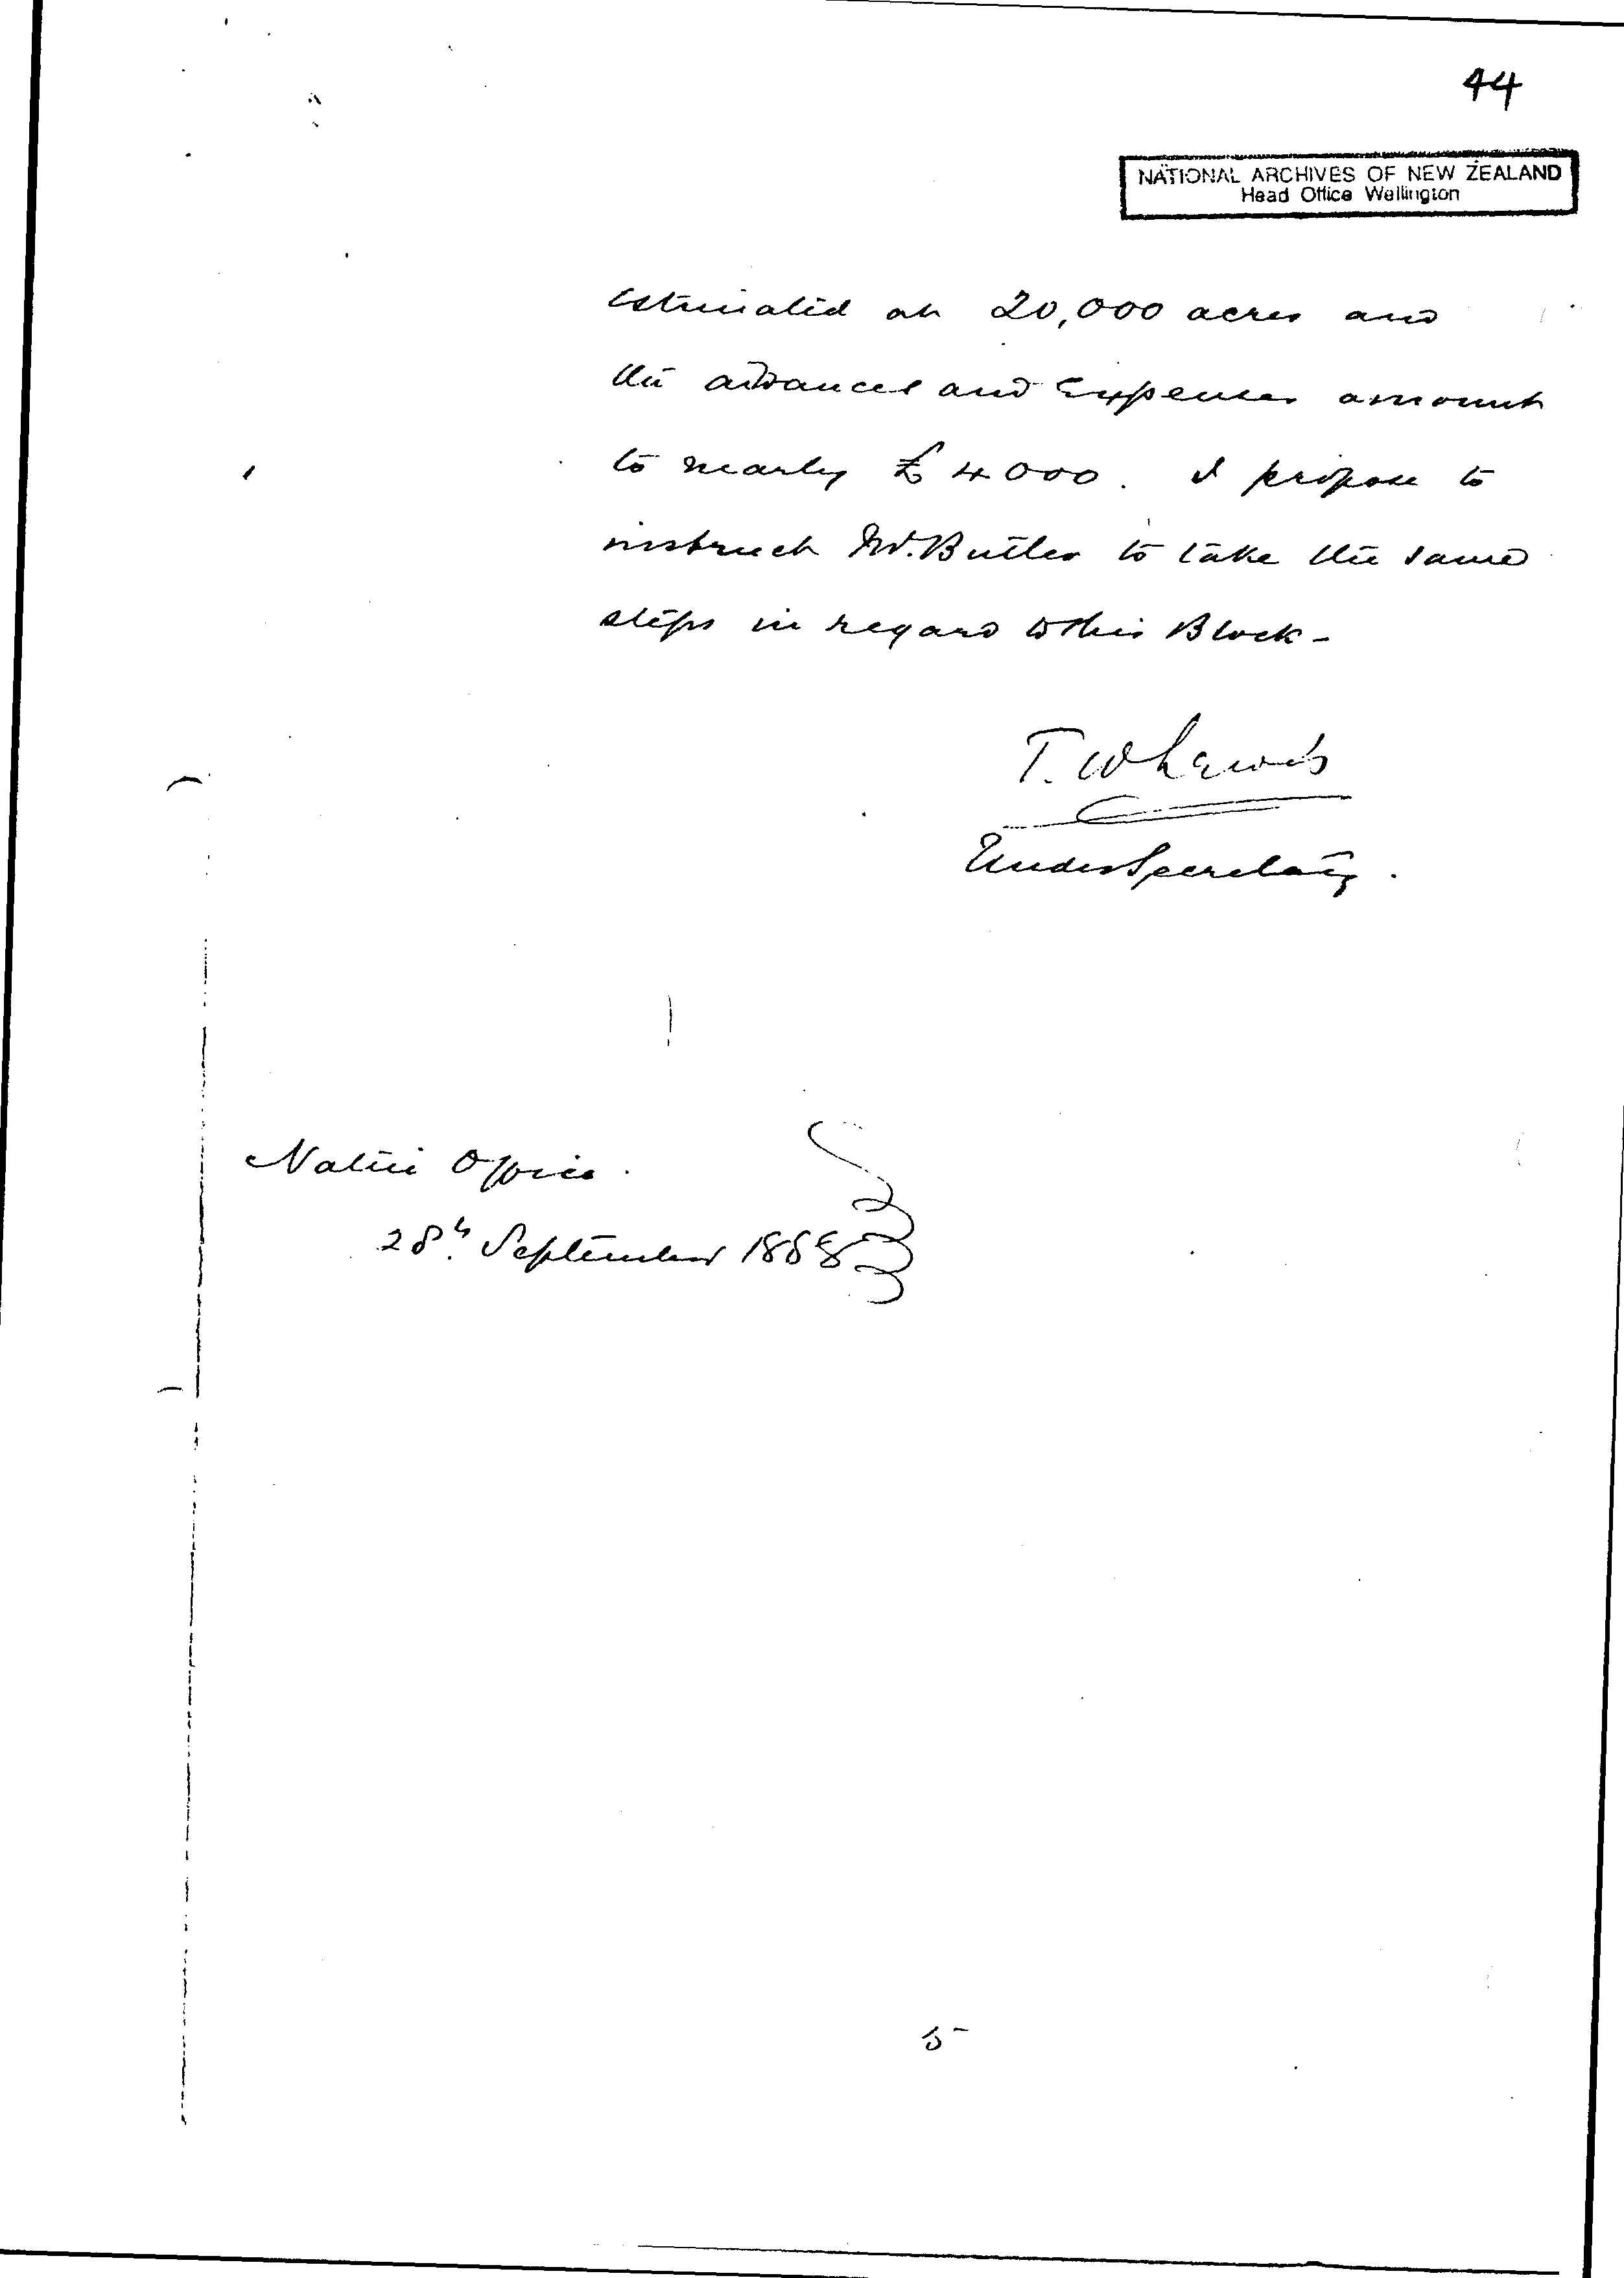 44
NATIONAL ARCHIVES OF NEW ZEALAND
Head Office Wellington
estimated at 20,000 acres and
the advances and expenses amount
to nearly £4000. I propose to
instruct Mr. Butler to take the same
steps in regard to this Block -
T. W Lewis
Under Secretary.
Native Office.
28th. September 1888
5